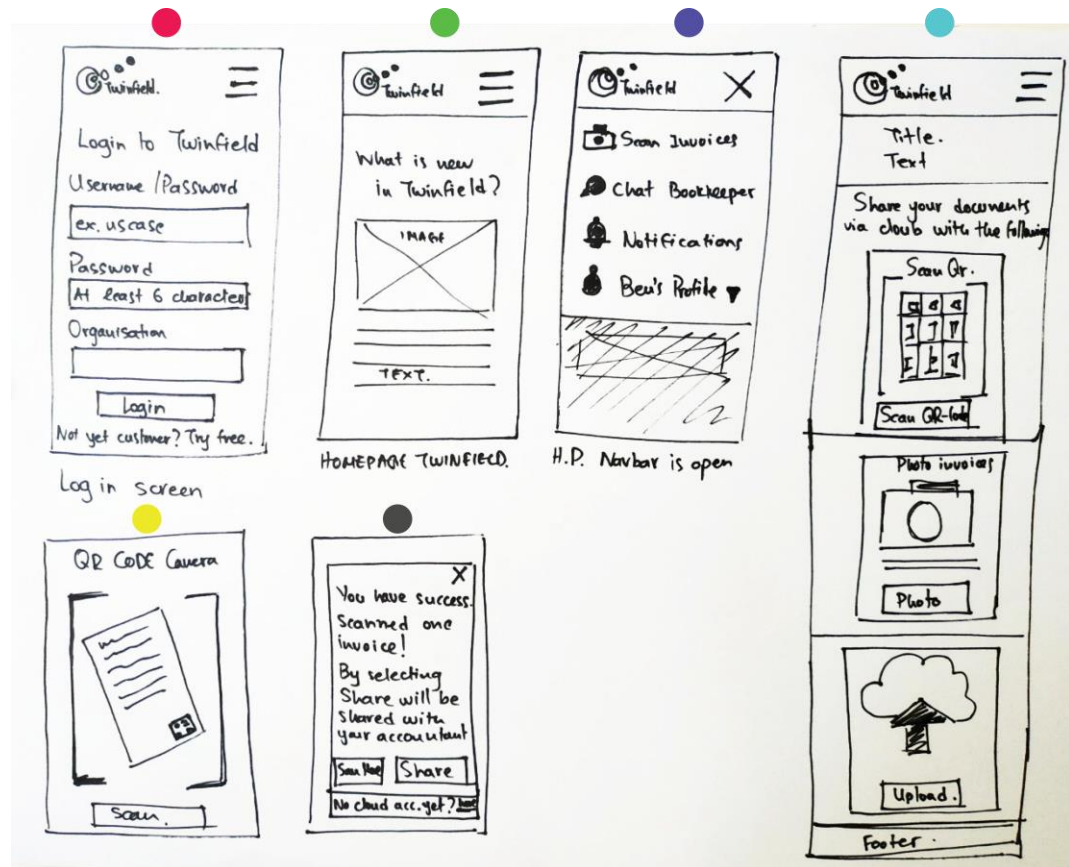 Twinfield.
Login to Twinfield
Username /Password
ex. uscase
Password
At least 6 character
Organisation
Login
Not yet customer? Try free.
Log in screen
Twinfield
What is new
in Twinfield?
IMAGE
TEXT.
HOMEPAGE TWINFIELD.
Twinfield
Scan Invoices
Chat Bookkeeper
Notifications
Ben's Profile
H.P. Navbar is open
Twinfield
Title.
Text
Share your documents
via cloub with the following
Scan Qr.
Scan QR-Code
Photo invoices
Photo
Upload.
Footer.
QR CODE Camera
Scan.
X
You have success.
Scanned one
invoice!
By selecting
Share will be
shared with
your accountant
Scan More
Share
No cloud acc. yet?